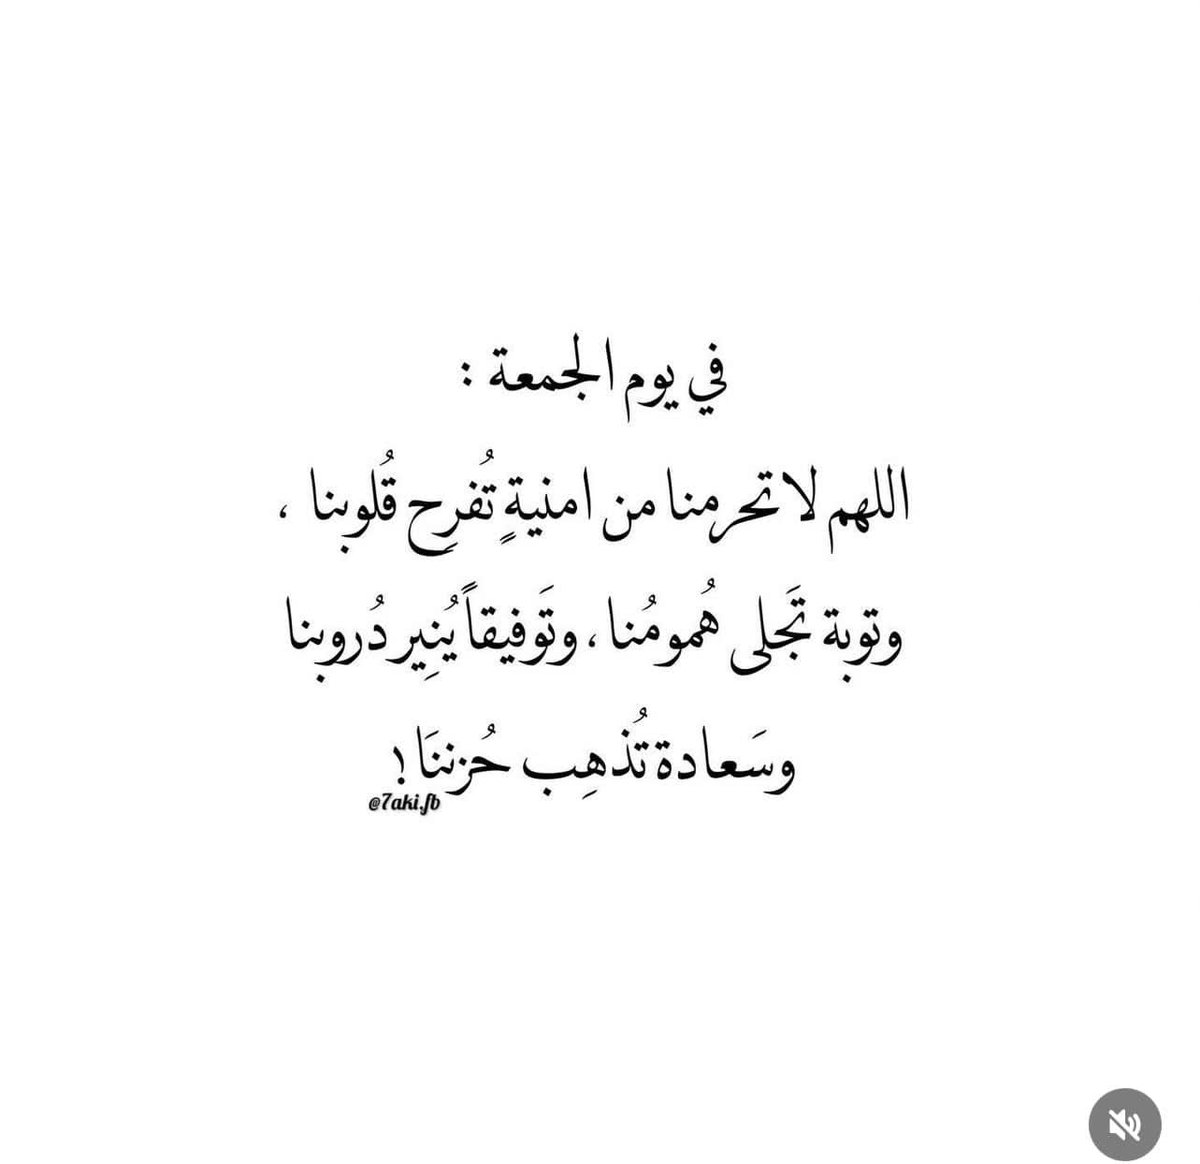 في يوم الجمعة :
اللهم لا تحرمنا من امنيةٍ تُفرِح قُلوبنا ،
وتوبة تَجلى هُمومُنا ، وتَوفيقاً يُنِير دُروبنا
وسَعادة تُذهِب حُزننَا !
@7aki.fb